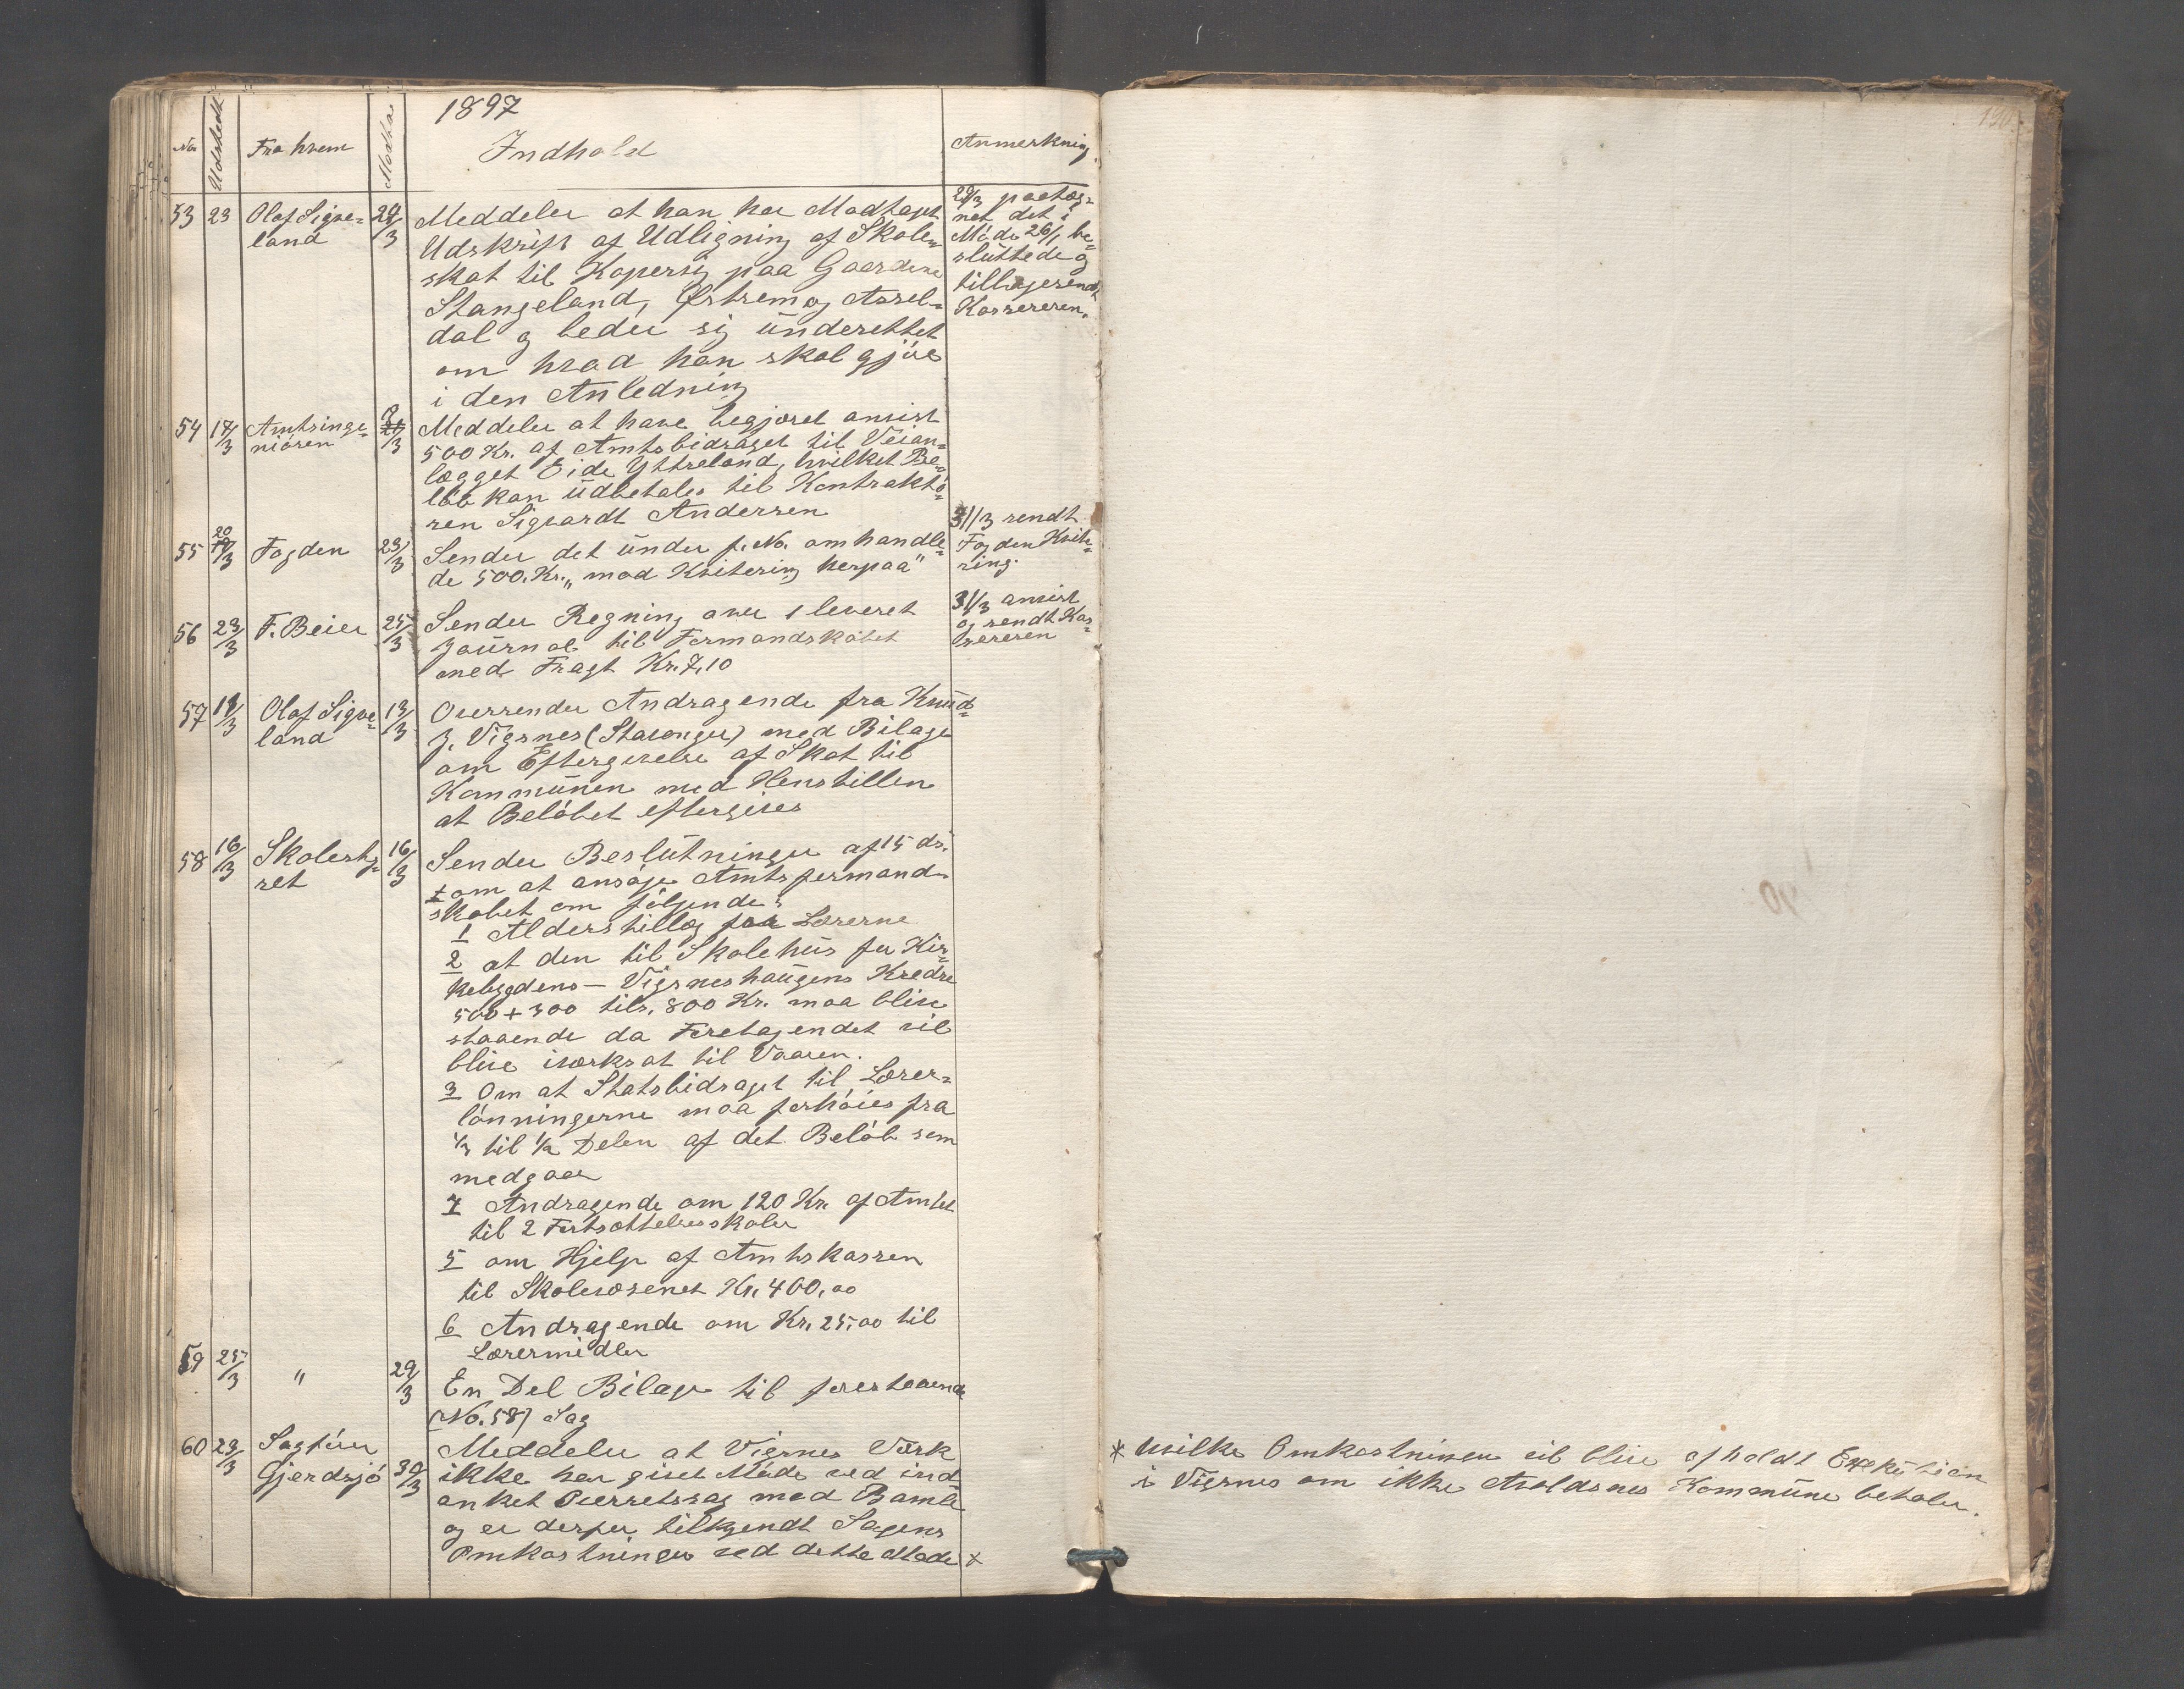 1897
No Udstedt Fra hvem Modtat Indhold Anmerkning
53 23 Olaf Sigve= 29/3 Meddeler at han har Modtaget 29/3 paateg=
land Udskrift af Udligning af Skole= net det i
skat til Kopervig paa Gaardene Møde 26/1 be=
Stangeland, Østrem og Aarel= sluttede og
dal og beder sig underettet tilbagesendt
om hvad han skal gjøre Kassereren.
i den Anledning
54 17/3 Amtsinge= 2/3 Meddeler at have begjæret anvist
niøren 500 Kr. af Amtsbidraget til Veian=
lægget Eide Yttreland, hvilket Be=
løb kan udbetales til Kontraktø=
ren Sigvardt Andersen
55 20/3 Fogden 23/3 Sender det under f. No. omhandle= 31/3 sendt
de 500. Kr. „mod Kvitering herpaa" Fogden Kvite=
ring.
56 23/3 F. Beier 25/3 Sender Regning over 1 leveret 31/3 anvist
Journal til Formandskabet og sendt Kas=
med Fragt Kr. 7,10 sereren
57 11/3 Olaf Sigve= 13/3 Oversender Andragende fra Knud=
land J. Vigsnes (Stavanger) med Bilage
om Eftergivelse af Skat til
Kommunen med Henstillen
at Beløbet eftergives
58 16/3 Skolesty= 16/3 Sender Beslutninger af 15 ds.
ret om at ansøge Amtsformand=
skabet om følgende:
1 Alderstillæg for Lærerne
2 at den til Skolehus for Kir=
kebygdens – Vigsneshaugens Kredse
500 + 300 tils. 800 Kr. maa blive
staaende da Foretagendet vil
blive iværksat til Vaaren.
3 Om at Statsbidraget til Lærer=
lønningerne maa forhøies fra
1/3 til 1/2 Delen af det Beløb som
medgaar
4 Andragende om 120 Kr. af Amtet
til 2 Fortsættelsesskoler
5 om Hjelp af Amtskassen
til Skolevæsenet Kr. 400,00
6 Andragende om Kr. 25,00 til
Lærermidler
59 25/3 " 29/3 En Del Bilage til forestaaende
(No. 58) Sag
60 23/3 Sagfører Meddeler at Vigsnes Værk
Gjerdsjø 30/3 ikke har givet Møde ved ind
anket Overretssag mod Bamle
og er derfor tilkjendt Sagens
Omkostninger ved dette Møde ×
130.
* hvilke Omkostninger vil blive afholdt Exekution
i Vigsnes om ikke Avaldsnes Kommune betaler.